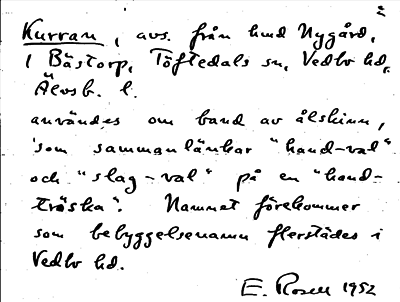 2
Kurran, avs. från hmd Nygård,
i Bästorp, Töftedals sn, Vedbo hd,
Älvsb. l.
användes om band av ålskinn,
som sammanlänkar "hand-val"
och "slag-val" på en "hand-
tröska". Namnet förekommer
som bebyggelsenamn flerstädes i
Vedbo hd.
E. Rosell 1952